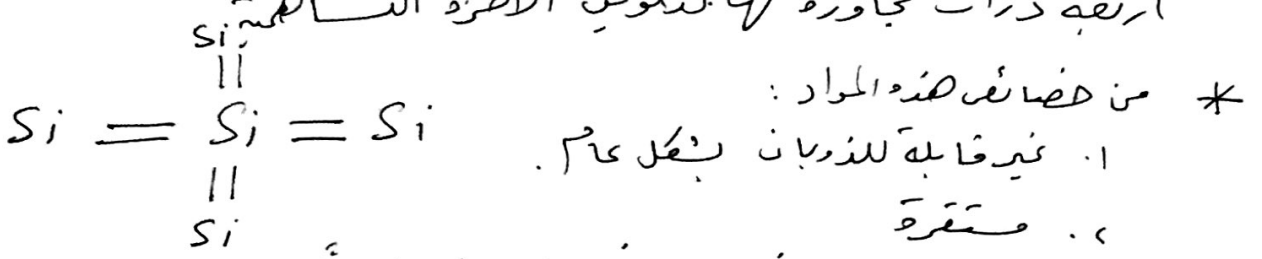 أربعة ذرات مجاورة لها لتكوين الآصرة التساهمية
Si
||
Si = Si = Si
||
Si
* من خصائص هذه المواد :
١. غير قابلة للذوبان بشكل عام .
٢. مستقرة